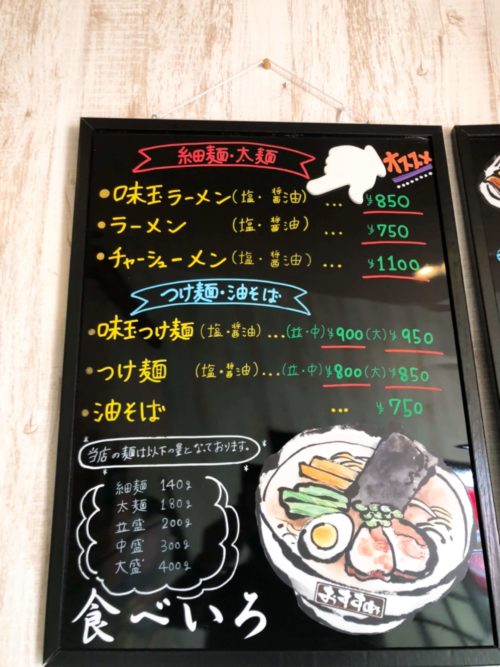 細麺・太麺
オススメ
・味玉ラーメン(塩・醤油) ... ¥850
・ラーメン (塩・醤油) ... ¥750
・チャーシューメン(塩・醤油) ... ¥1100
つけ麺・油そば
・味玉つけ麺(塩・醤油)...(並・中)¥900(大)¥950
・つけ麺 (塩・醤油)...(並・中)¥800(大)¥850
・油そば ... ¥750
当店の麺は以下の量となっております。
細麺 140g
太麺 180g
並盛 200g
中盛 300g
大盛 400g
食べいろ